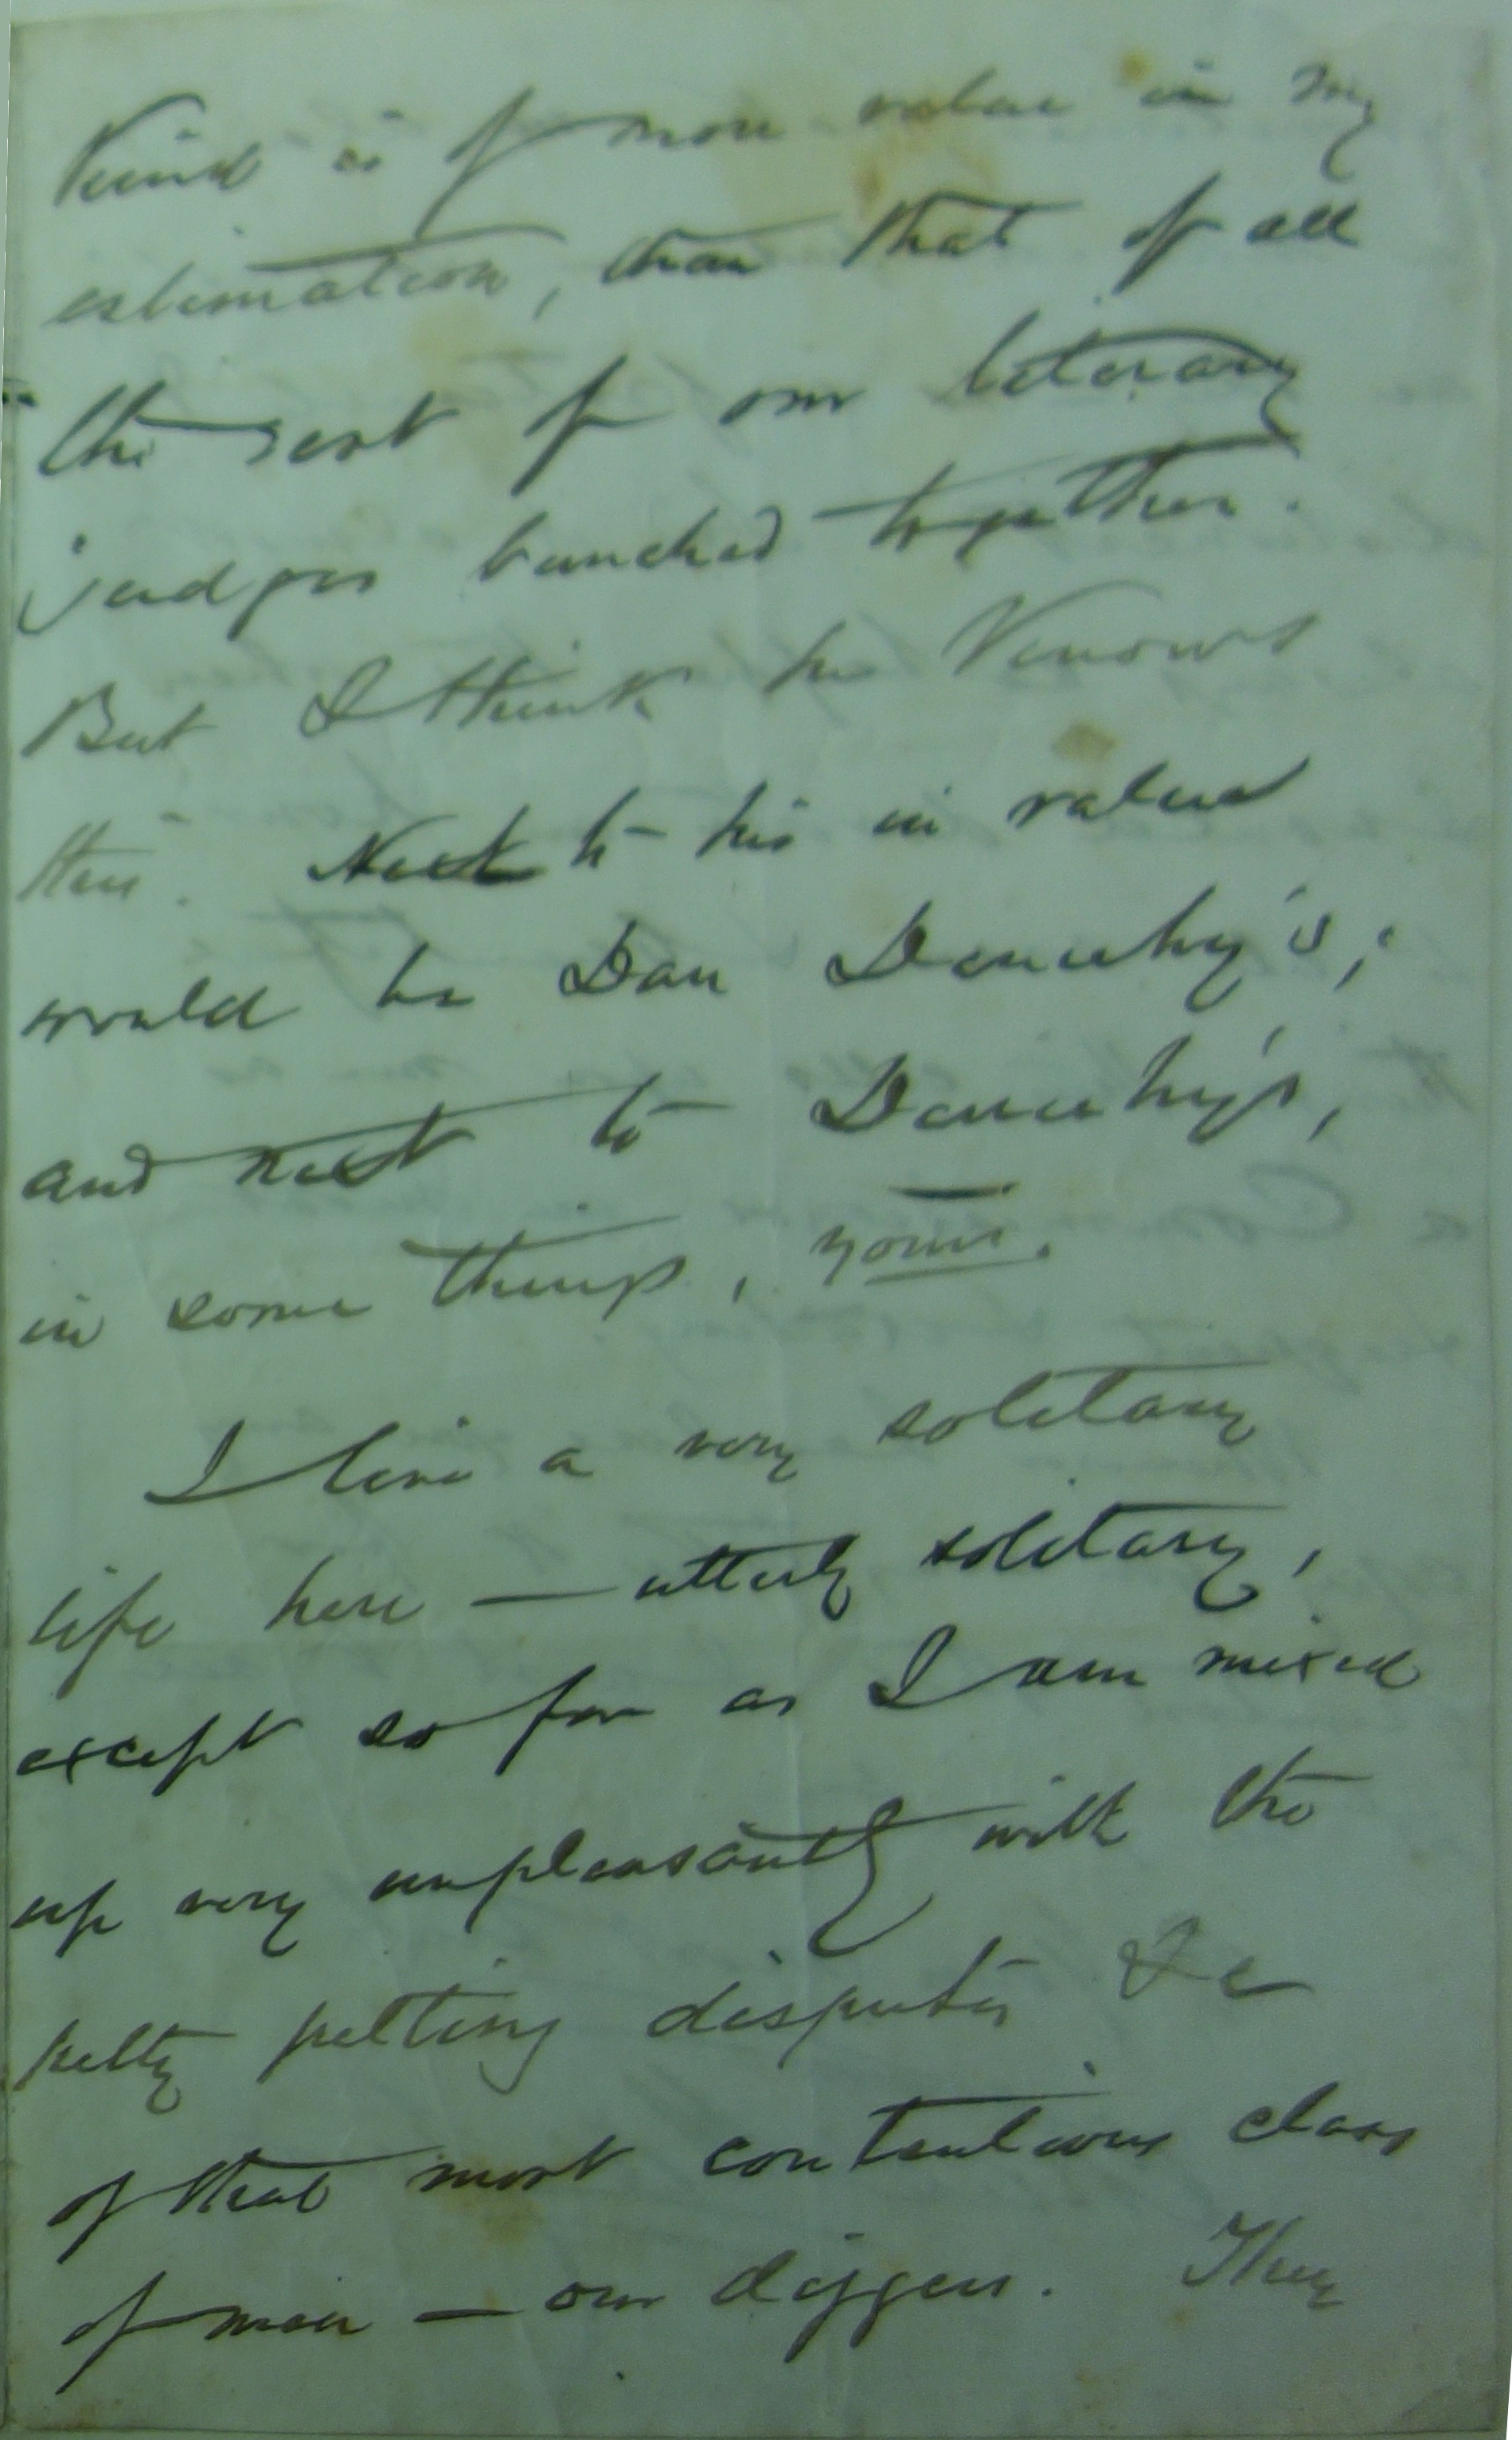 kind is of more value in my
estimation, than that of all
the rest of our literary
judges bunched together.
But I think he knows
this. Next to his in value
would be Dan Deniehy's;
and next to Deniehy's,
in some things, yours.
I live a very solitary
life here — utterly solitary,
except so far as I am mixed
up very unpleasantly with the
petty pelting disputes &c
of that most contentious class
of men — our diggers. They